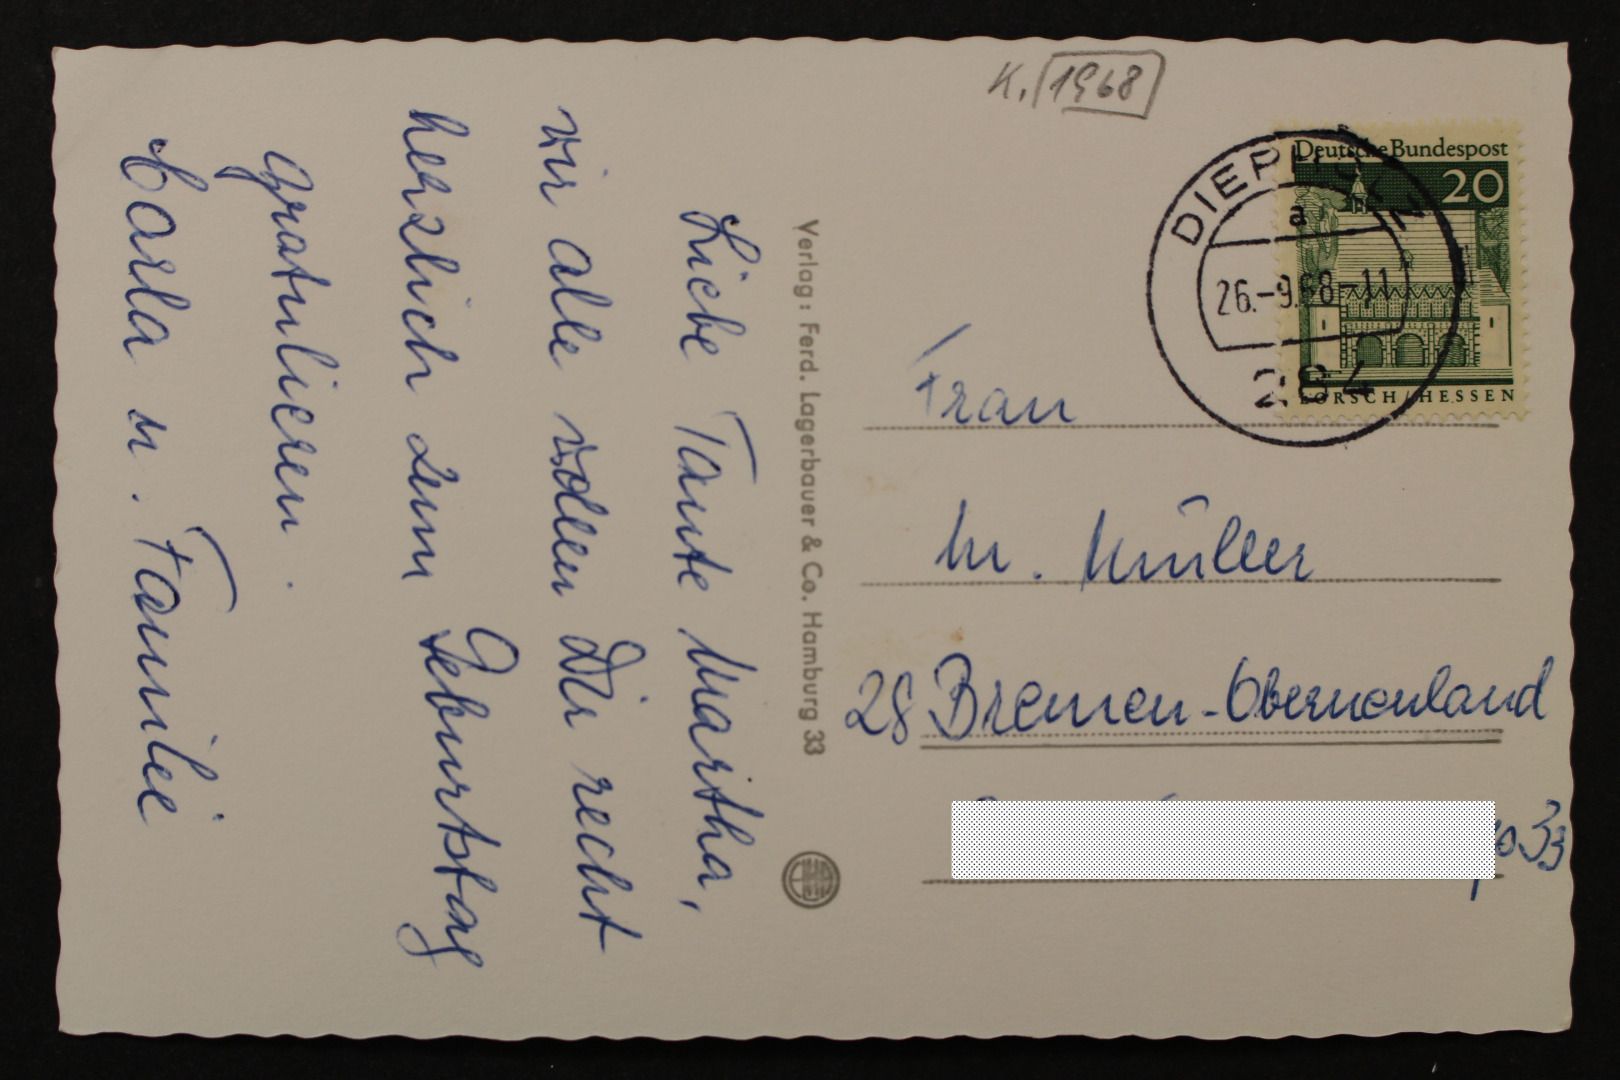 K. 1968
Deutsche Bundespost
20
LORSCH/HESSEN
DIEPHOLZ
a
26.-9.68-11
284
Liebe Tante Martha,
wir alle wollen Dir recht
herzlich zum Geburtstag
gratulieren.
Carla u. Familie
Verlag: Ferd. Lagerbauer & Co. Hamburg 33
Frau
M. Müller
28 Bremen-Oberneuland
33